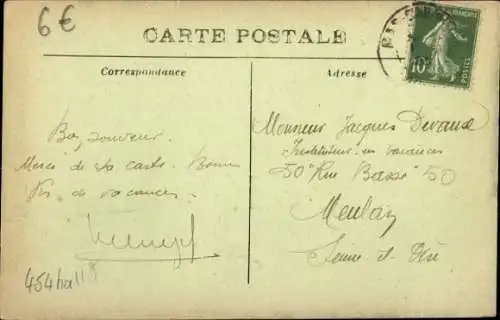 6€
CARTE POSTALE
Correspondance
Adresse
10c
POSTES
Bon souvenir.
Merci de ta carte. Bonne
de vacances.
Monsieur Jacques Devaux
Instituteur en vacances
50 "Rue Basse" 50
Meulan
Seine et Oise
454ha118